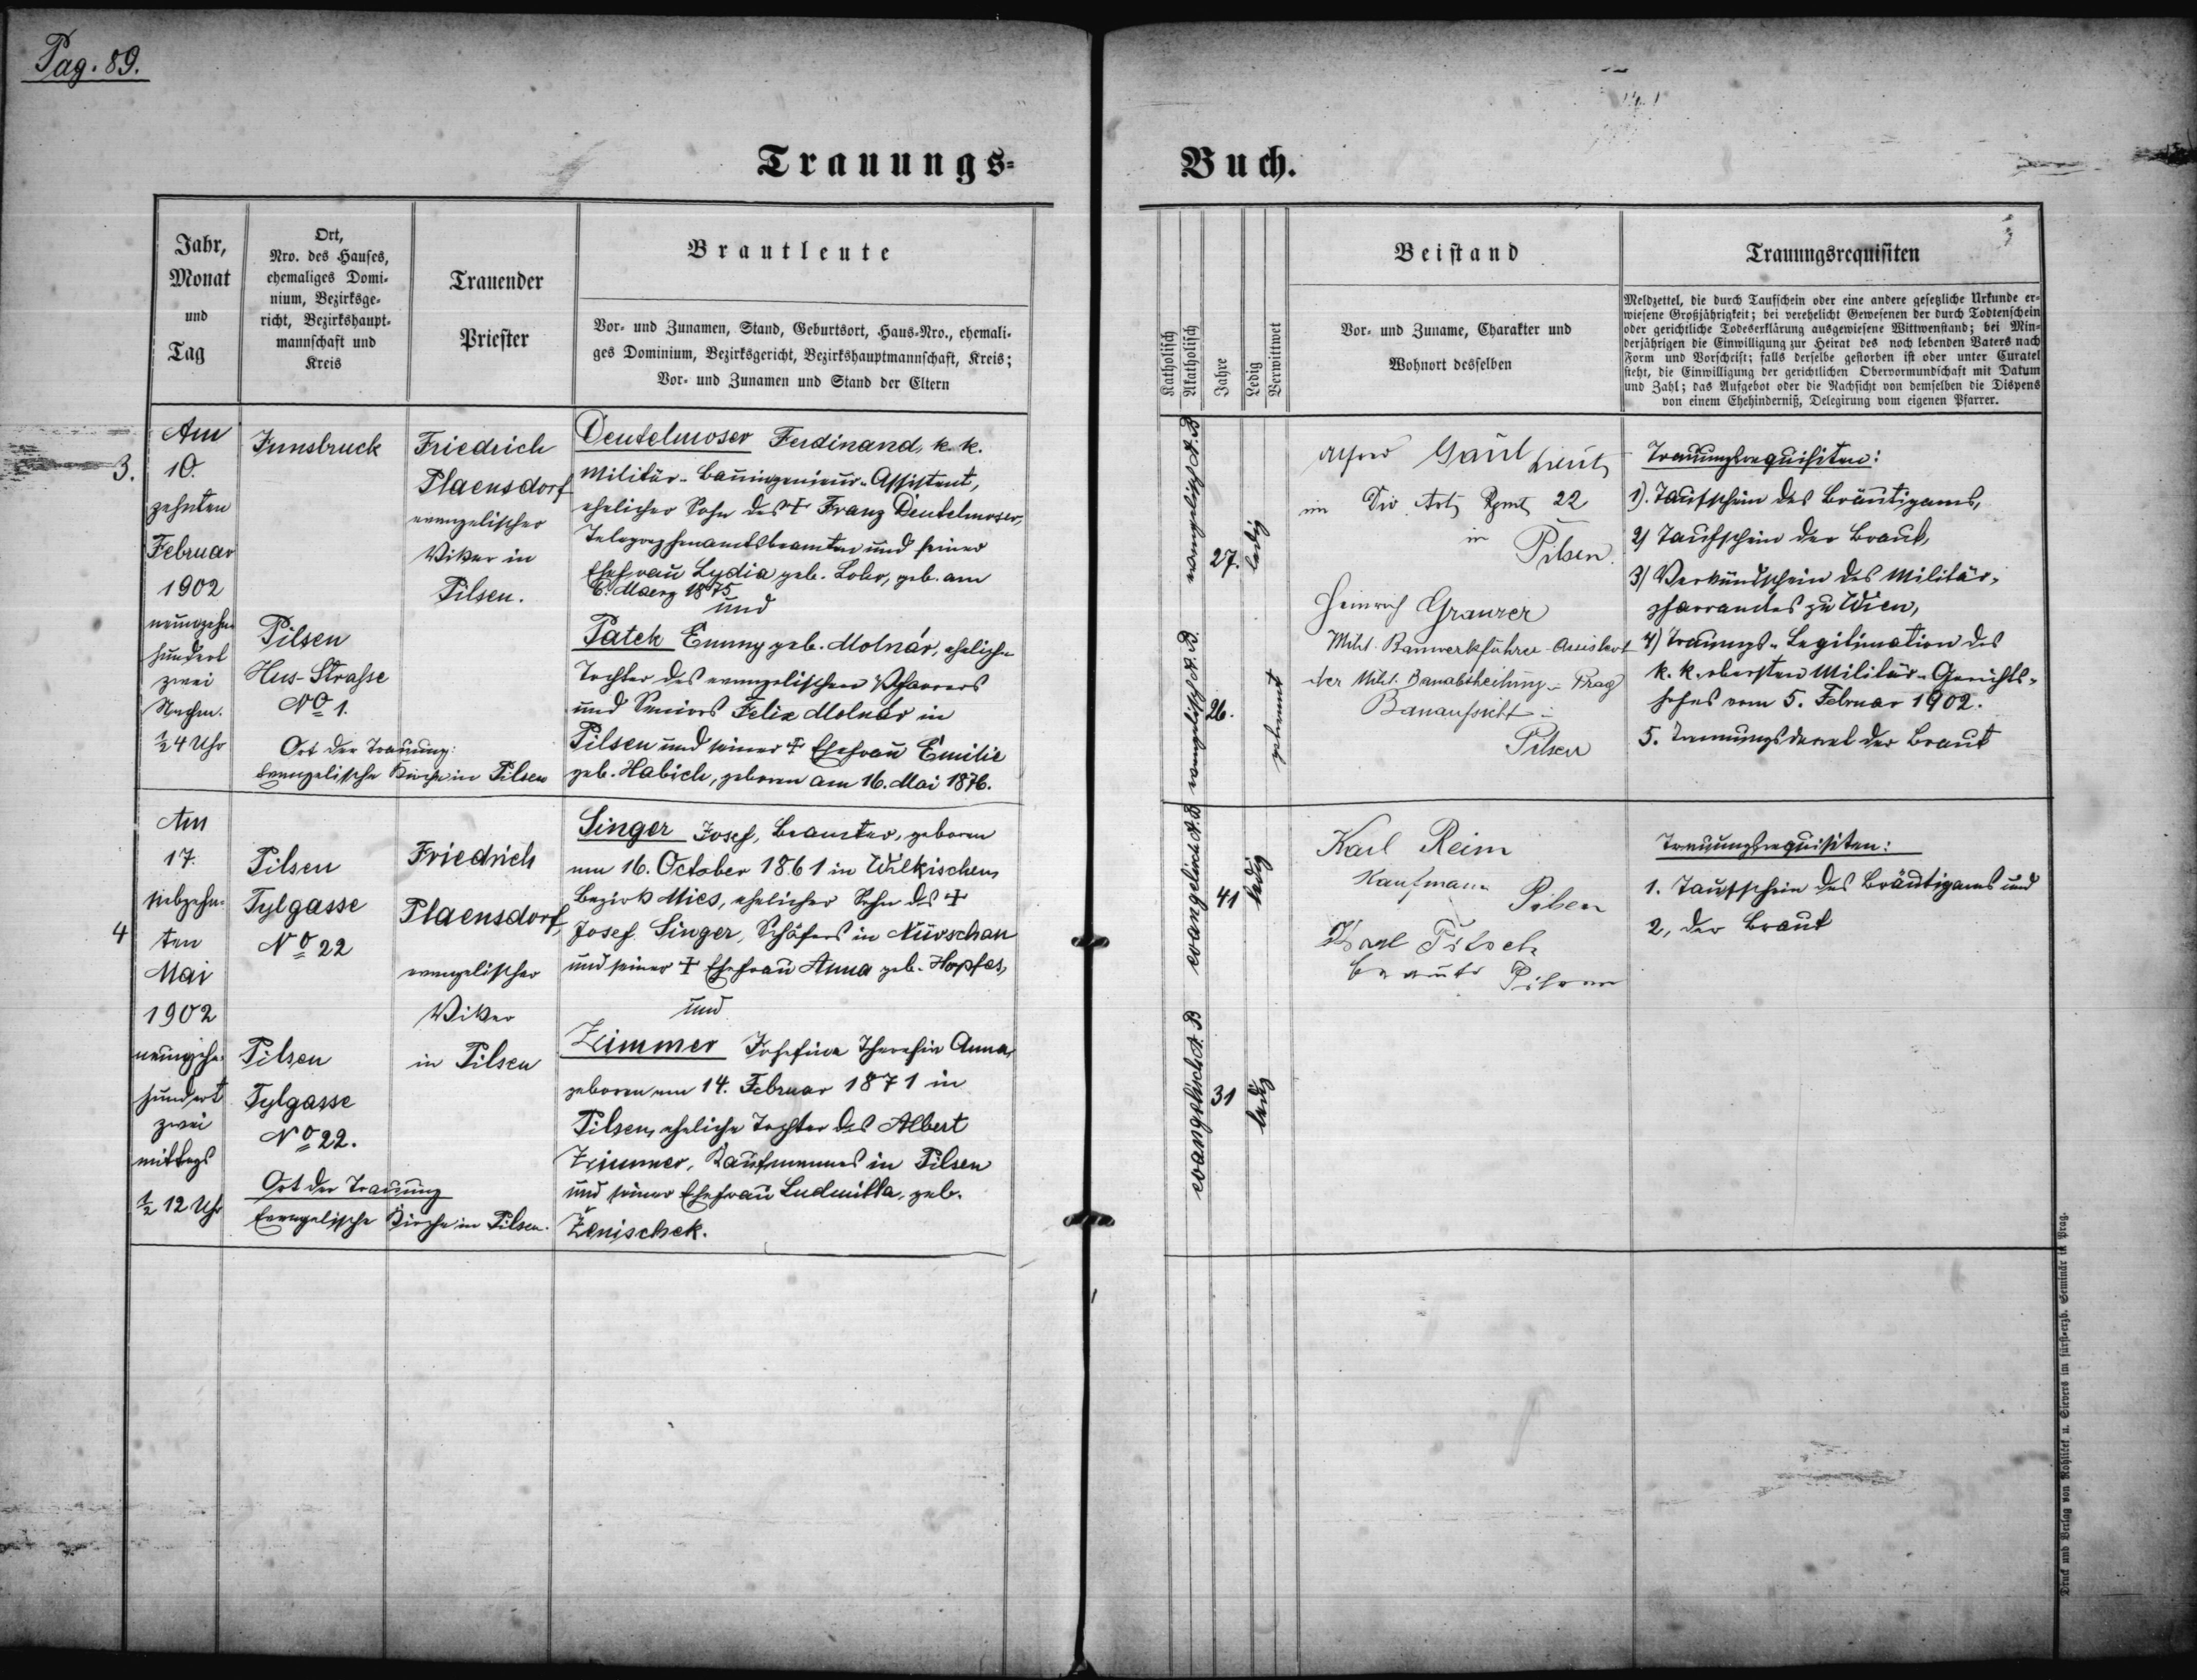 Pag. 89.
Trauungs-
Buch.
Jahr,
Monat
und
Tag
Ort,
Nro. des Hauses,
ehemaliges Domi-
nium, Bezirksge-
richt, Bezirkshaupt-
mannschaft und
Kreis
Trauender
Priester
Brautleute
Vor- und Zunamen, Stand, Geburtsort, Haus-Nro., ehemali-
ges Dominium, Bezirksgericht, Bezirkshauptmannschaft, Kreis;
Vor- und Zunamen und Stand der Eltern
Katholisch
Akatholisch
Jahre
Ledig
Verwittwet
Beistand
Vor- und Zuname, Charakter und
Wohnort desselben
Trauungsrequisiten
Meldzettel, die durch Taufschein oder eine andere gesetzliche Urkunde er-
wiesene Großjährigkeit; bei verehelicht Gewesenen der durch Todtenschein
oder gerichtliche Todeserklärung ausgewiesene Wittwenstand; bei Min-
derjährigen die Einwilligung zur Heirat des noch lebenden Vaters nach
Form und Vorschrift; falls derselbe gestorben ist oder unter Curatel
steht, die Einwilligung der gerichtlichen Obervormundschaft mit Datum
und Zahl; das Aufgebot oder die Nachsicht von demselben die Dispens
von einem Ehehinderniß, Delegirung vom eigenen Pfarrer.
3.
Am
10.
zehnten
Februar
1902
neunzehn-
hundert
zwei
Nachm.
½ 4 Uhr
Innsbruck
Pilsen
Hus-Strasse
No 1.
Ort der Trauung:
Evangelische Kirche in Pilsen
Friedrich
Plaensdorf
evangelischer
Vikar in
Pilsen.
Deutelmoser Ferdinand, k. k.
Militär-Bauingenieur-Assistent,
ehelicher Sohn des † Franz Deutelmoser,
Telegraphenamtsbeamten und seiner
Ehefrau Lydia geb. Lohr, geb. am
6. Maerz 1875
und
Patek Emmy geb. Molnár, eheliche
Tochter des evangelischen Pfarrers
und Seniors Felix Molnár in
Pilsen und seiner † Ehefrau Emilie
geb. Habich, geboren am 16. Mai 1876.
evangelisch A. B.
27.
ledig
evangelisch A. B.
26.
getrennt
Alfred Gaul Leut
im Div Art Rgmt 22
in Pilsen.
Heinrich Graurer
Milit. Bauwerkführer-Assistent
der Milit. Bauabtheilung - Prag
Bauaufsicht:
Pilsen
Trauungsrequisiten:
1). Taufschein des Bräutigams,
2) Taufschein der Braut,
3) Verkündschein des Militär-
pfarramtes zu Wien,
4) Trauungs-Legitimation des
k. k. obersten Militär-Gerichts-
hofes vom 5. Februar 1902.
5. Trennungsdecret der Braut
4
Am
17.
siebzehn-
ten
Mai
1902
neunzehn-
hundert
zwei
mittags
½ 12 Uhr
Pilsen
Tylgasse
No 22
Pilsen
Tylgasse
No 22.
Ort der Trauung
Evangelische Kirche in Pilsen.
Friedrich
Plaensdorf,
evangelischer
Vikar
in Pilsen
Singer Josef, Beamter, geboren
am 16. October 1861 in Wilkischen,
Bezirk Mies, ehelicher Sohn des †
Josef Singer, Schäfers in Nürschan
und seiner † Ehefrau Anna geb. Hopfes,
und
Zimmer Josefine Theresia Anna,
geboren am 14. Februar 1871 in
Pilsen, eheliche Tochter des Albert
Zimmer, Kaufmannes in Pilsen
und seiner Ehefrau Ludmilla, geb.
Ženischek.
evangelisch A. B
41
ledig
evangelisch A. B
31
ledig
Karl Reim
Kaufmann
Pilsen
Karl Pitsch
Beamte Pilsen
Trauungsrequisiten:
1. Taufschein des Bräutigams und
2, der Braut
Druck und Verlag von Rohlicek u. Sievers im fürst-erzb. Seminär in Prag.